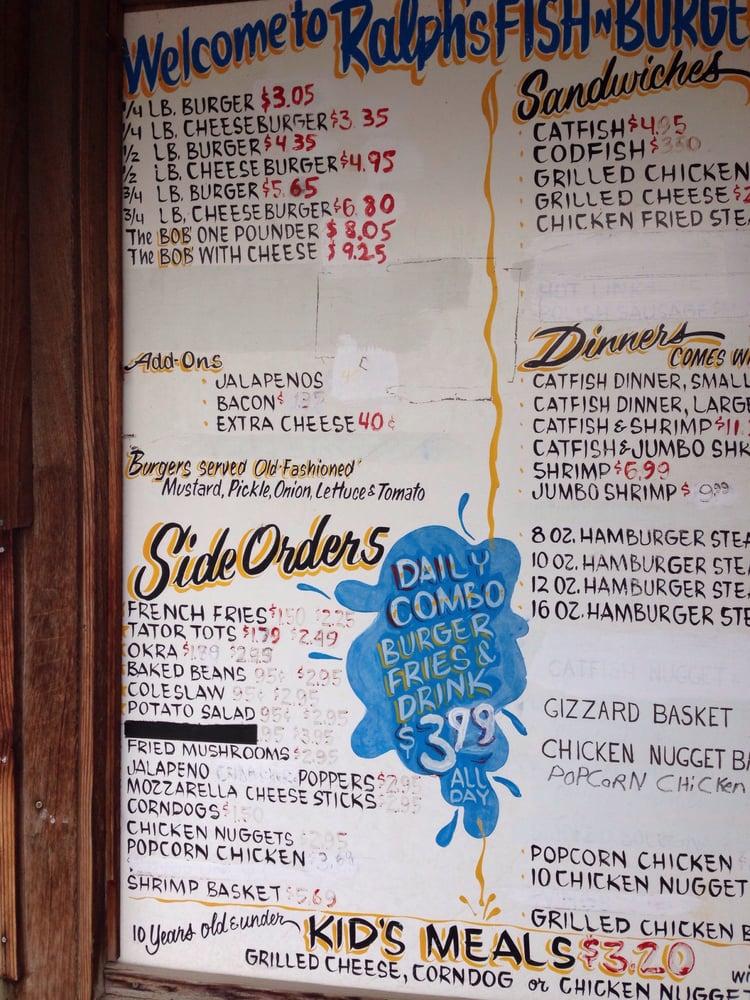 Welcome to Ralph's FISH N BURGE
1/4 LB. BURGER $3.05
1/4 LB. CHEESEBURGER $3.35
1/2 LB. BURGER $4.35
1/2 LB. CHEESEBURGER $4.95
3/4 LB. BURGER $5.65
3/4 LB. CHEESEBURGER $6.80
The BOB ONE POUNDER $8.05
The BOB WITH CHEESE $9.25
Add-Ons
JALAPENOS
BACON $
EXTRA CHEESE 40¢
"Burgers served Old-Fashioned"
Mustard, Pickle, Onion, Lettuce & Tomato
Side Orders
FRENCH FRIES $1.50 $2.25
TATOR TOTS $1.79 $2.49
OKRA $1.89 $2.99
BAKED BEANS 95¢ $2.95
COLESLAW 95¢ $2.95
POTATO SALAD 95¢ $2.95
95 $3.95
FRIED MUSHROOMS $2.95
JALAPENO POPPERS $2.95
MOZZARELLA CHEESE STICKS $2.95
CORNDOGS $1.50
CHICKEN NUGGETS $2.95
POPCORN CHICKEN $3.69
SHRIMP BASKET $5.69
DAILY
COMBO
BURGER
FRIES &
DRINK
$3.99
ALL
DAY
Sandwiches
CATFISH $4.95
CODFISH $3.50
GRILLED CHICKEN
GRILLED CHEESE $2
CHICKEN FRIED STEA
HOT LINK
POLISH SAUSAGE
Dinners
COMES WI
CATFISH DINNER, SMALL
CATFISH DINNER, LARGE
CATFISH & SHRIMP $11.
CATFISH & JUMBO SHR
SHRIMP $6.99
JUMBO SHRIMP $9.99
8 OZ. HAMBURGER STEA
10 OZ. HAMBURGER STEA
12 OZ. HAMBURGER STE
16 OZ. HAMBURGER STE
CATFISH NUGGET
GIZZARD BASKET
CHICKEN NUGGET BA
POPCORN CHICKEN
POPCORN CHICKEN
10 CHICKEN NUGGET
GRILLED CHICKEN B
10 Years old & under
KID'S MEALS $3.20
GRILLED CHEESE, CORNDOG or CHICKEN NUGGET
wi